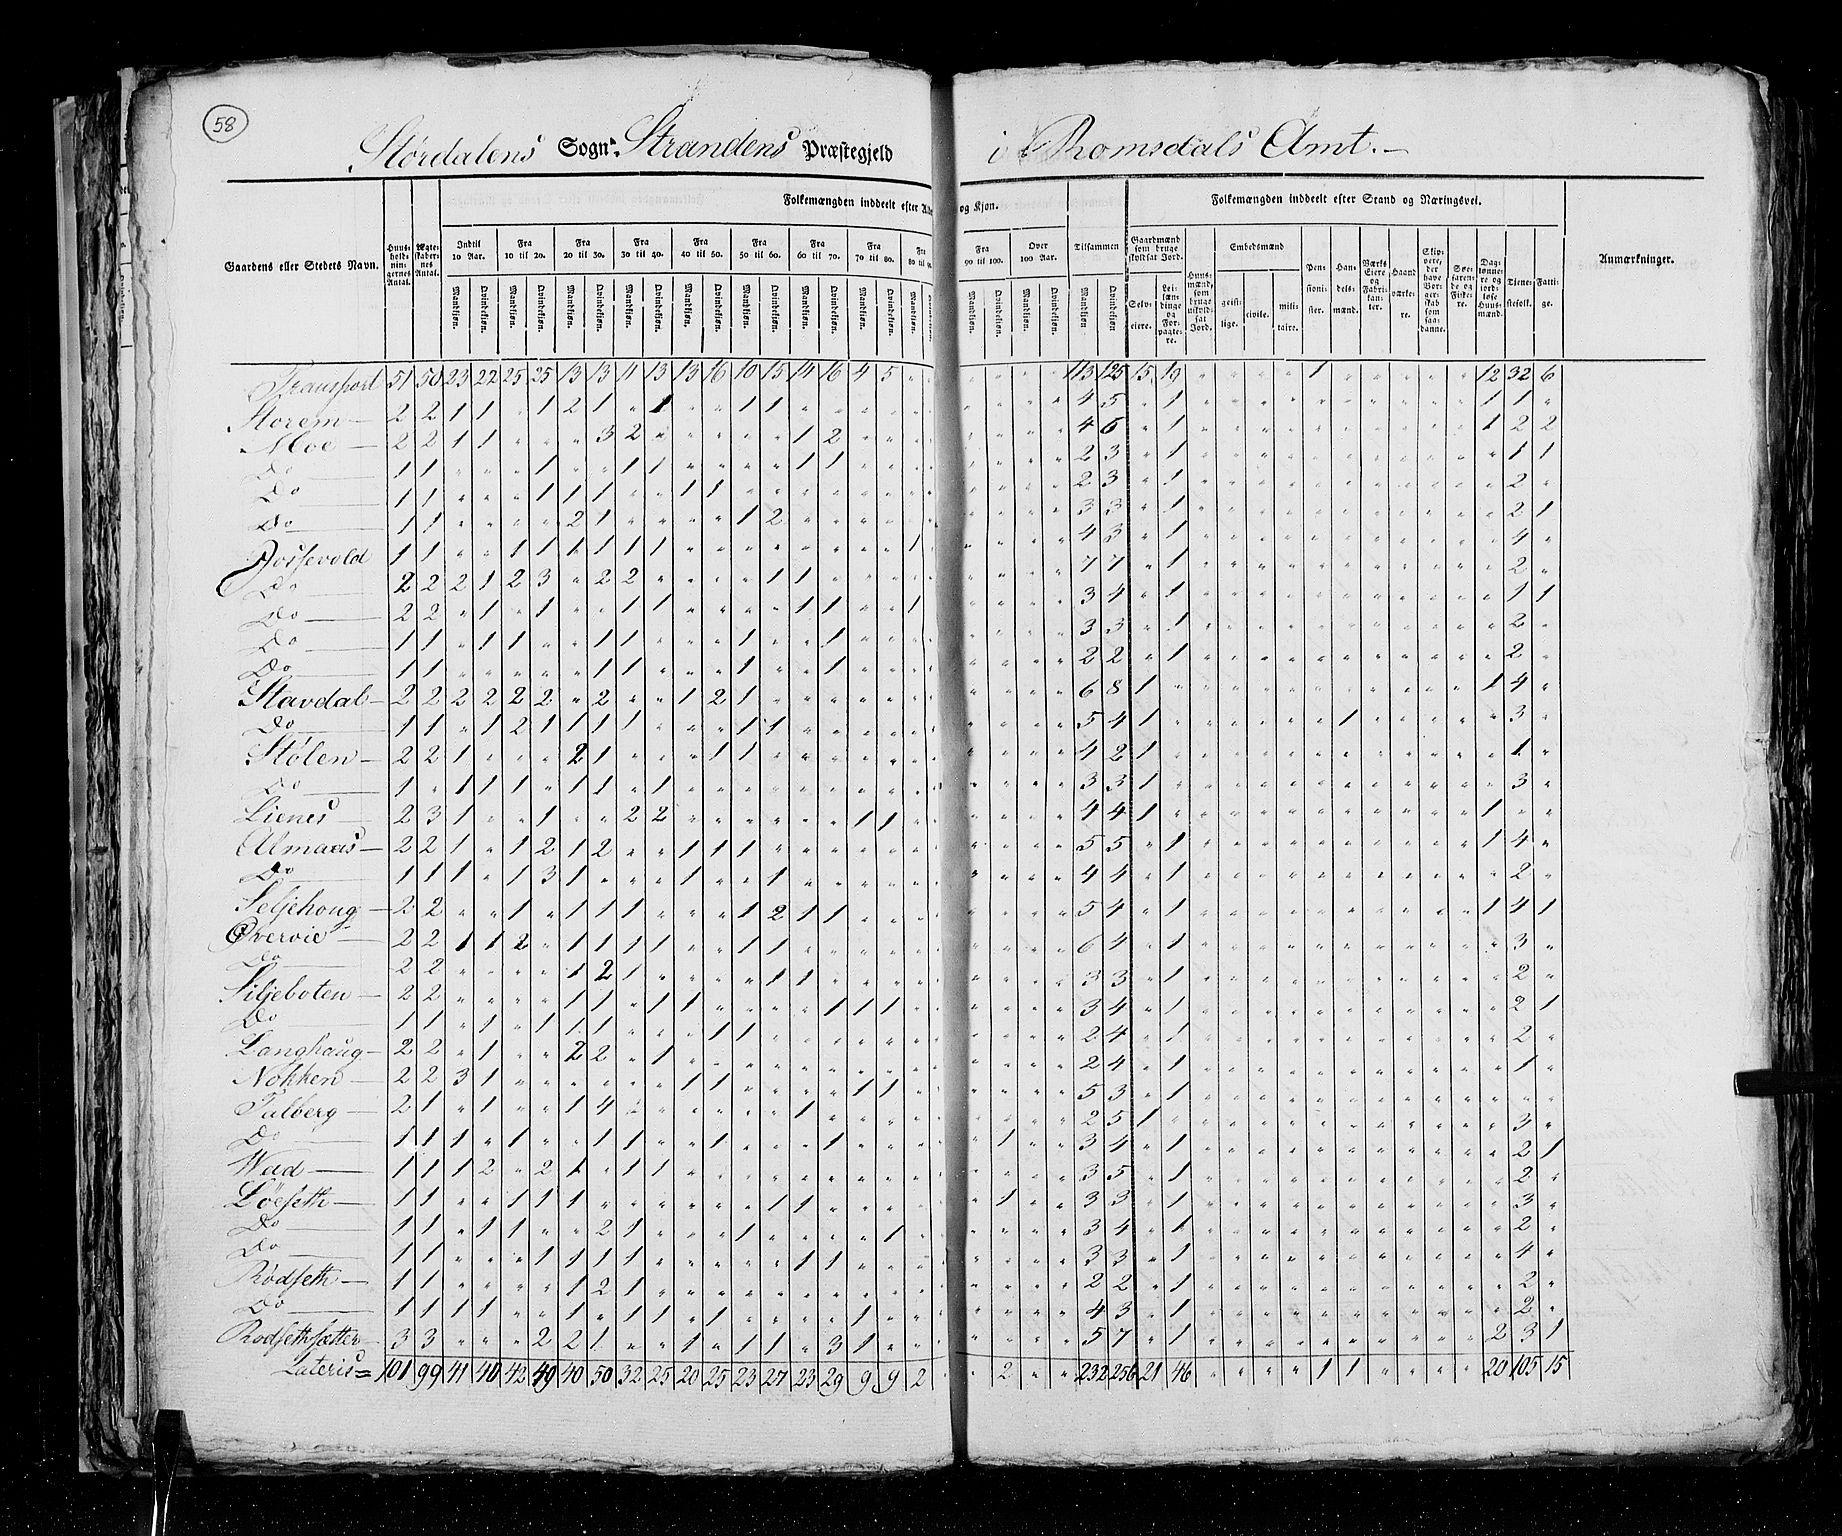 58
Størdalens Sogn, Strandens Præstegjeld i Romsdals Amt.
Gaardens eller Stedets Navn.
Huusholdningernes Antal.
Ægteskabernes Antal.
Folkemængden inddeelt efter Alder og Kjøn.
Indtil 10 Aar. Fra 10 til 20. Fra 20 til 30. Fra 30 til 40. Fra 40 til 50. Fra 50 til 60. Fra 60 til 70. Fra 70 til 80. Fra 80 til Fra 90 til 100. Over 100 Aar. Tilsammen
Mandkjøn. Qvindekjøn.
Folkemængden inddeelt efter Stand og Næringsvei.
Gaardmænd som bruge skyldsat Jord.
Selveiere.
Leilændinge og Forpagtere.
Huusmænd, som bruge uskyldsat Jord.
Embedsmænd
geistlige.
civile.
militaire.
Pensionister.
Handelsmænd.
Værks Eiere og Fabrikanter.
Haandværkere.
Skippere, der have Borgerskab som saadanne.
Søefarende og Fiskere.
Daglønnere og jordløse Huusmænd.
Tjenestefolk.
Fattige.
Anmærkninger.
Transport 51 50 23 22 25 25 13 13 11 13 13 16 10 15 14 16 4 5 " " " " " 113 125 15 19 " " " " 1 " " " " " 12 32 6
Storem 2 2 1 1 " 1 2 1 " 1 " " 1 1 4 5 " 1 1 1 "
Moe 2 2 1 1 " " " 3 2 " " " " " 1 2 4 6 " 1 1 2 2
Do 1 1 " " " 1 " " 1 1 " " " " 1 1 2 3 " 1 " 1 1
Do 1 1 " " " 1 1 1 " " 1 1 2 3 " 1 " 2 "
Do 1 1 " " " " 2 1 " " " " 1 2 3 3 " 1 " 2 1
Fossevold 1 1 " " 1 1 1 1 1 1 " " " " " " " " 1 4 3 " 1 " 4 "
Do 2 2 2 1 2 3 " 2 2 " " " " 1 1 7 7 " 1 " 2 "
Do 2 2 " 1 " 1 " " 1 1 " " " " 1 1 " " 1 3 4 " 1 " 1 1
Do 1 1 " 1 1 " " 1 1 " " " 1 " " 1 3 3 " 1 " 2 "
Do 1 1 " " " " " 1 1 " " " 1 " " 1 2 2 " 1 " 2 "
Stavdal 2 2 2 2 2 2 " 2 " " 1 2 1 6 8 1 " 1 4 "
Do 1 1 " 1 2 1 1 1 1 " " " 1 1 5 4 1 " 1 " 3 "
Stølen 2 2 1 " " " 2 1 " " " 1 1 4 2 1 " " 1 "
Do 1 " 1 1 1 " 1 1 " 1 3 3 1 " " 3 "
Lienes 2 3 1 " " 1 " " 2 2 " " " " " " 1 1 4 4 1 " 1 " "
Almaas 2 2 1 " 1 2 1 2 " " 1 1 1 5 5 " 1 1 4 "
Do 1 1 1 " 1 3 1 " " " 1 " " 1 4 4 " 1 " 2 "
Seljehoug 2 2 " " 1 " 1 1 1 " " " 1 2 1 1 5 4 " 1 1 4 1
Øvervie 2 2 1 1 2 " 1 1 1 1 " " 1 1 6 4 " 1 " 3 "
Do 2 2 " " " " 1 2 1 " " " " 1 1 3 3 " 1 " 2 "
Siljeboten 2 2 " " " " 1 1 " 1 1 " " " " 1 1 1 3 4 " 1 " 2 1
Do 1 1 " 1 " 1 1 1 " " " 1 1 2 4 " 1 " 2 "
Langhaug 2 2 " 1 " " 2 2 " 1 2 4 " 1 " 1 "
Nokken 2 2 3 1 " " " " " " 1 1 " " " " 1 1 5 3 " 1 " " "
Talberg 2 1 " 1 " " 1 4 " " " " " " 1 2 5 1 " " 3 "
Do 1 1 1 " 1 " " 1 1 " " 1 " " " 1 1 3 4 " 1 " 2 1
Wad 1 1 1 2 " 2 1 " 1 1 3 5 " 1 " 2 "
Løeseth 1 1 " " 1 1 1 " " " " " " 1 1 1 3 3 " 1 " 3 "
Do 1 1 " 1 1 " " 2 1 " " " 1 " " " " 1 3 4 " 1 " 2 "
Do 1 1 " " " 1 1 1 1 " " " " " 1 1 3 3 " 1 " 4 "
Rødseth 1 1 " " " " 1 2 1 2 2 " 1 " 2 "
Do 1 1 1 1 " " 1 " 1 1 " 1 " " " " 1 4 3 " 1 " 2 "
Rødsethsætter 3 3 " " " 2 2 1 " " 1 " 1 1 " 3 1 5 7 " 1 2 3 1
Lateris = 101 99 41 40 42 49 40 50 32 25 20 25 23 27 23 29 9 9 2 " " 2 " " 232 256 21 46 " " " " 1 1 " " " " 20 105 15